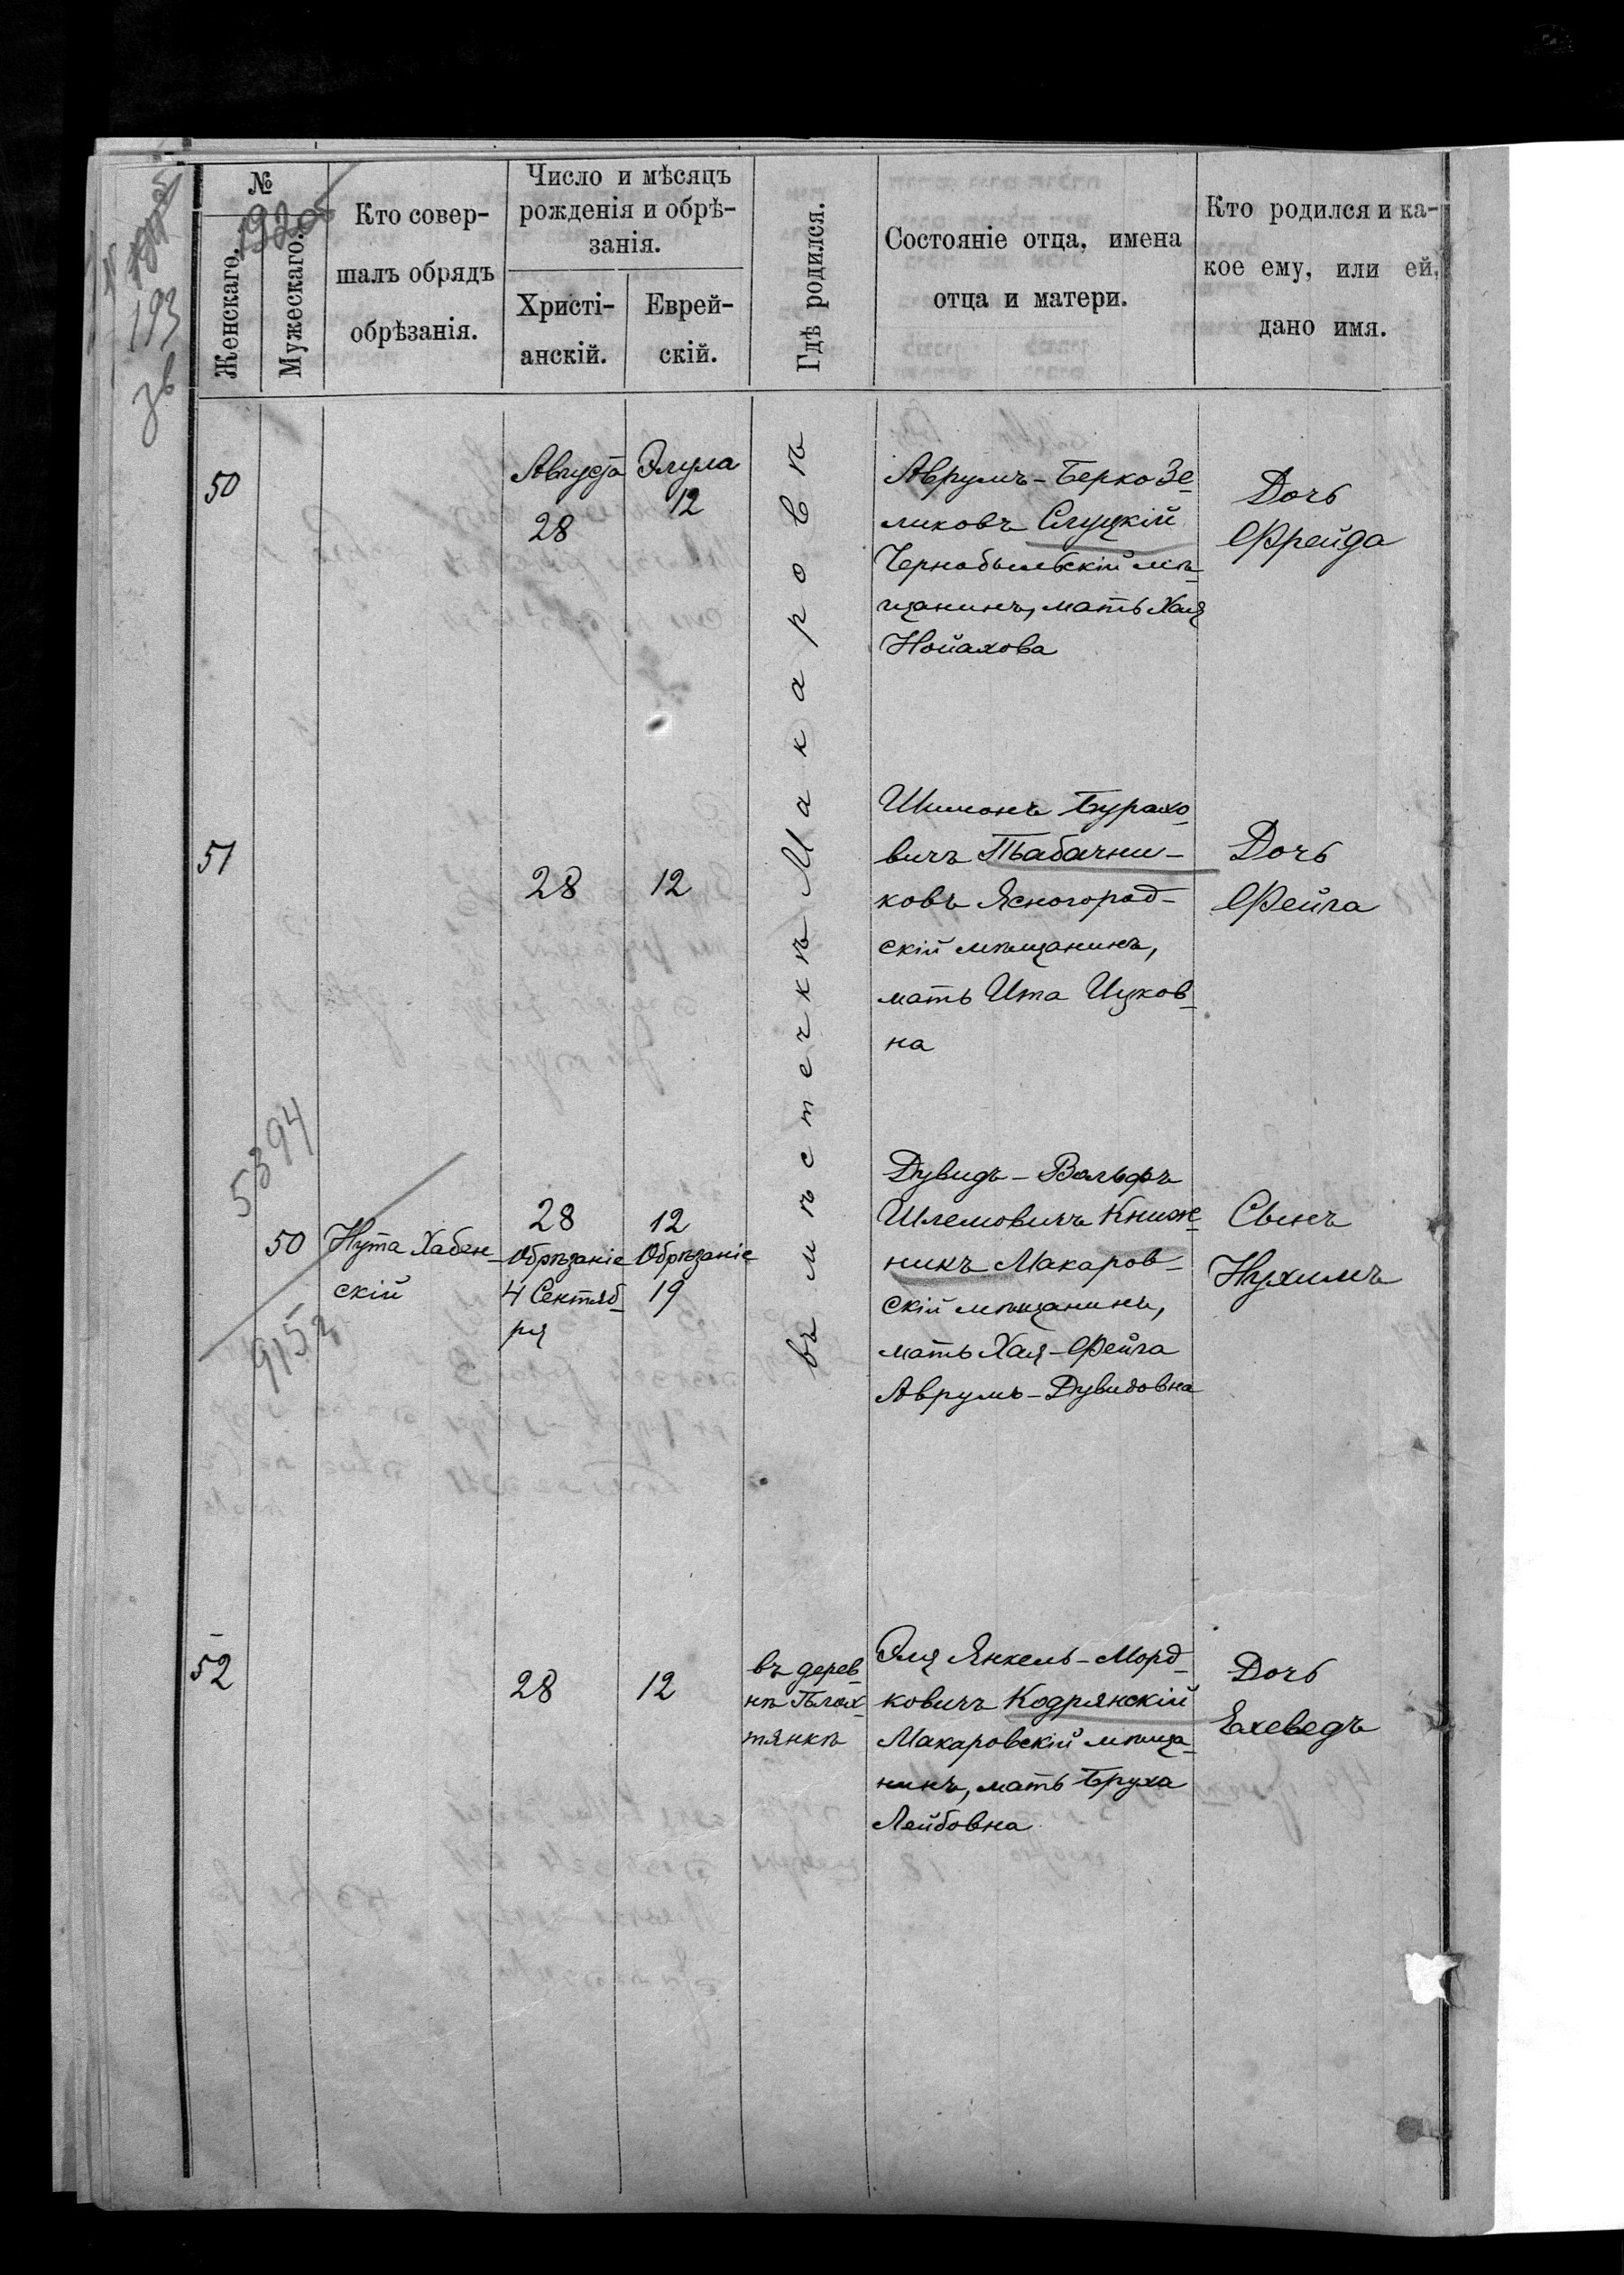 193
36
№
1920
Женскаго.
Мужескаго.
Кто совер-
шалъ обрядъ
обрѣзанія.
Число и мѣсяцъ
рожденія и обрѣ-
занія.
Христі-
анскій.
Еврей-
скій.
Гдѣ родился.
Состояніе отца, имена
отца и матери.
Кто родился и ка-
кое ему, или ей,
дано имя.
въ мѣстечкѣ Макаровѣ
50
Августа
28
Элула
12
Аврумъ-Берко Зе-
ликовъ Слуцкій
Чернобыльскій мѣ-
щанинъ, мать Хая
Нойахова
Дочь
Фрейда
51
28
12
Шимонъ Бурахо-
вичъ Табачни-
ковъ Ясногород-
скій мѣщанинъ,
мать Ита Ицков-
на
Дочь
Фейга
5394
50
9152
Нута Хабен-
скій
28
Обрѣзаніе
4 Сентяб-
ря
12
Обрѣзаніе
19
Дувидъ-Вольфъ
Шлемовичъ Книж-
никъ Макаров-
скій мѣщанинъ,
мать Хая-Фейга
Аврумъ-Дувидовна
Сынъ
Нухимъ
52
28
12
въ дерев-
нѣ Плах-
тянкѣ
Эля Янкель-Морд-
ковичъ Кодрянскій
Макаровскій мѣща-
нинъ, мать Бруха
Лейбовна
Дочь
Ехеведъ